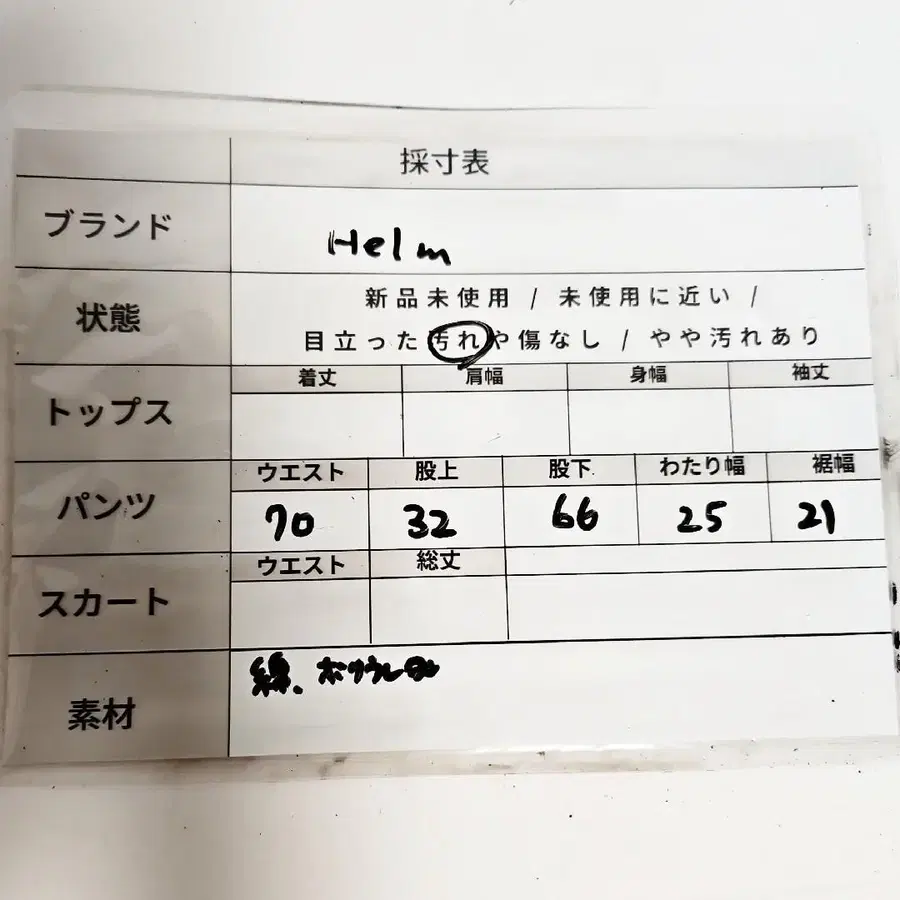 採寸表
ブランド
Helm
状態
新品未使用 / 未使用に近い /
目立った汚れや傷なし / やや汚れあり
トップス
着丈 肩幅 身幅 袖丈
パンツ
ウエスト 股上 股下 わたり幅 裾幅
70 32 66 25 21
スカート
ウエスト 総丈
素材
綿、ポリウレタン